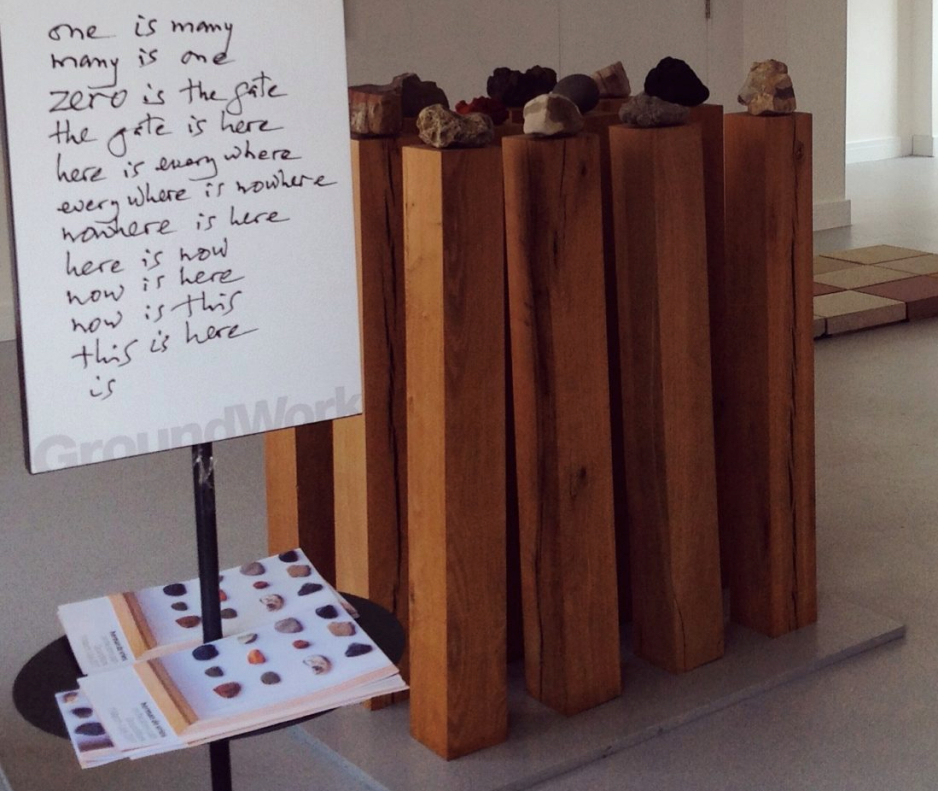 one is many
many is one
zero is the gate
the gate is here
here is everywhere
everywhere is nowhere
nowhere is here
here is now
now is here
now is this
this is here
is
GroundWork
herman de vries
herman de vries